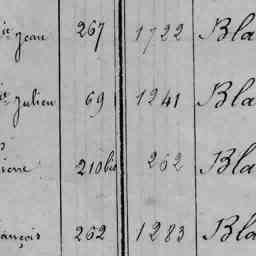 ie Jean 267 1722 Bla
ie Julien 69 1241 Bla
ierre 210 bis 262 Bla
ançois 262 1283 Bla